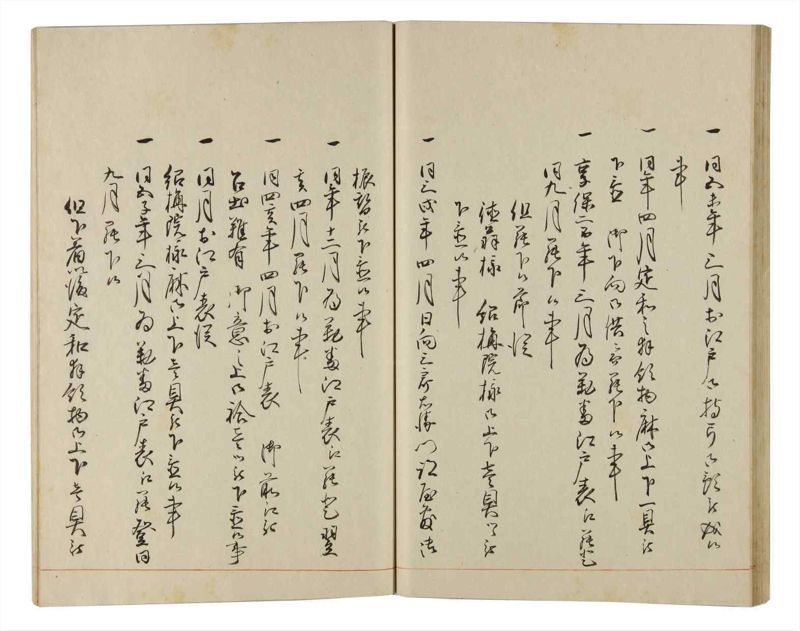 一 同五未年 三月 於江戸 被
事
一 同年四月 定和之 拝領物麻御上下一具被
下置 御下向御供ニ而罷下候事
一 享保二酉年 三月為勤番江戸表江罷登
同九月罷下候事
但罷下候前 従
徳 様 紹梅院様御上下壱具ツヽ被
下置候事
一 同三戌年 四月 日向三 右衛門
振替被下置候事
一 同年十二月為勤番江戸表江罷登 翌
亥四月罷下候事
一 同四亥年四月於江戸表 御前江被
召出 難有 御意之上御袷壱ツ被下置候事
一 同月於江戸表従
紹梅院様麻御上下壱具被下置候事
一 同五子年三月為勤番江戸表江罷登 同
九月罷下候
但下着以後定和拝領物御上下壱具被